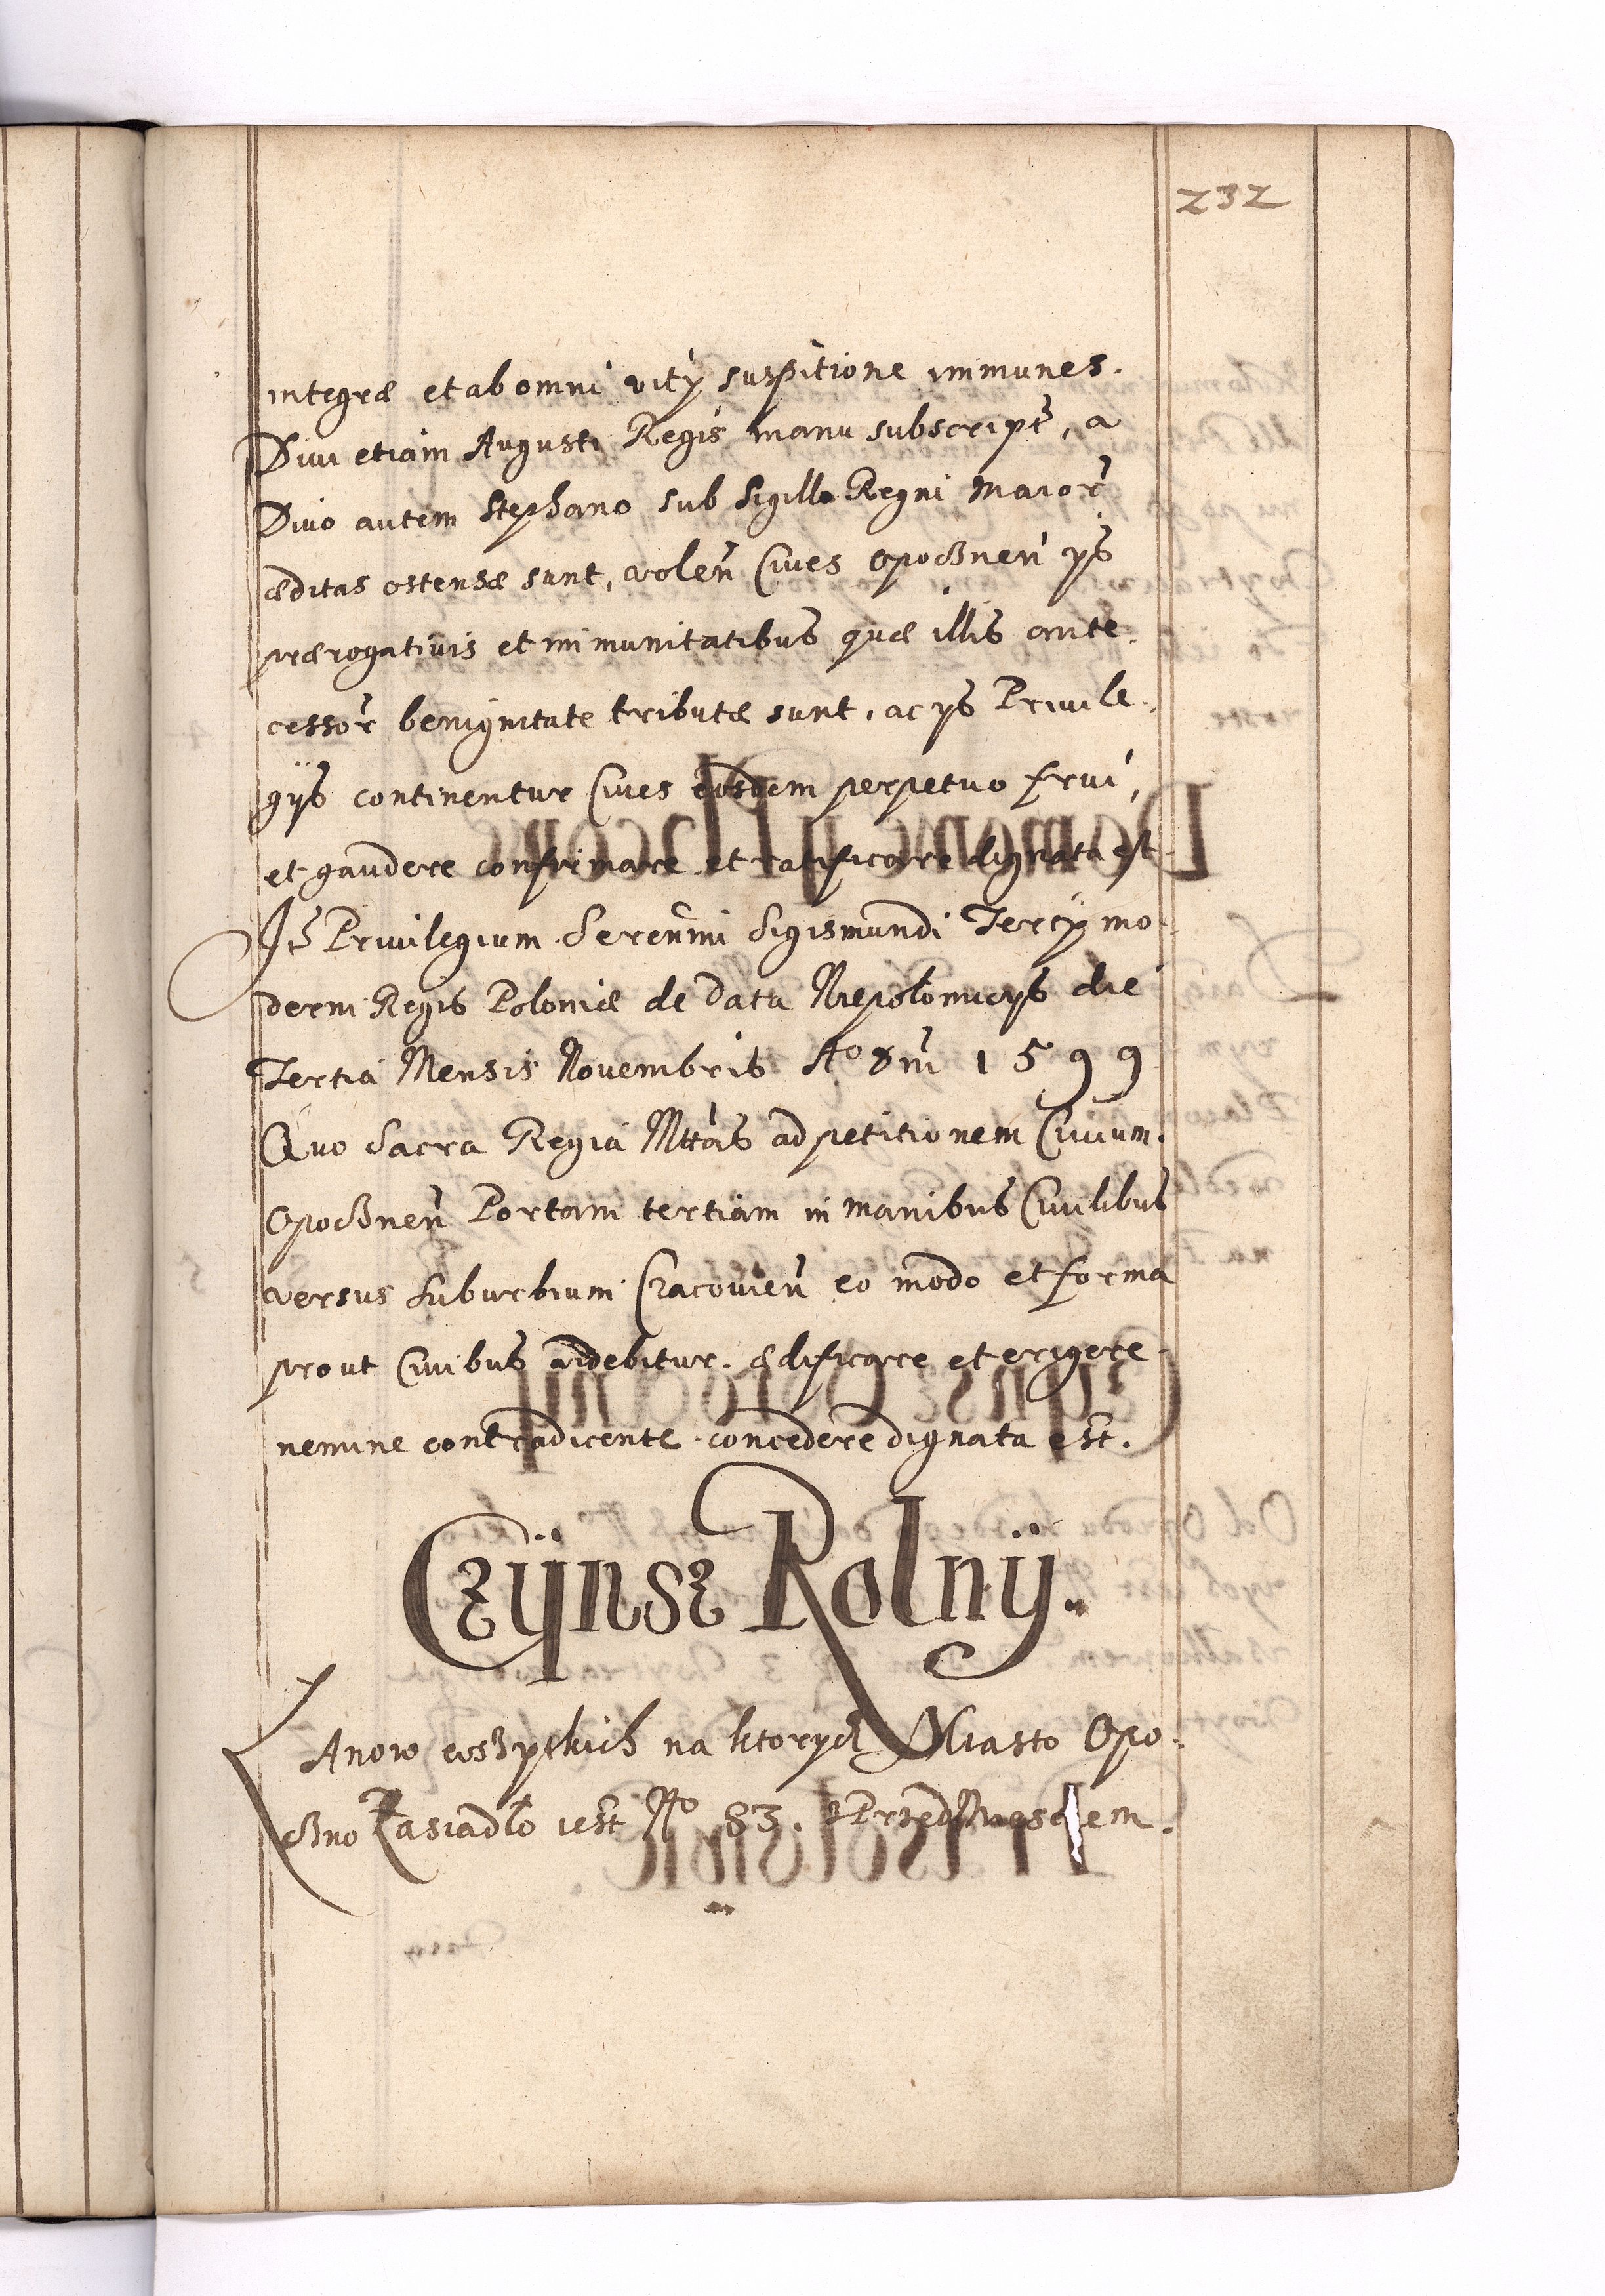 232
integræ et ab omni vitÿ suspitione immunes.
Divi etiam Augusti Regis manu subscript, a
Divo autem Stephano sub Sigillo Regni Maior
æditas ostensæ sunt, volen Cives Opocznen ÿs
prærogativis et immunitatibus quæ illis ante-
cessor benignitate tributæ sunt, ac ÿs Privile-
gÿs continentur Cives eosdem perpetuo frui,
et gaudere confirmare et ratificare dignata est
It Privilegium Serenmi Sigismundi Tercÿ mo-
derni Regis Poloniæ de data Niepolomicÿs die
Tertia Mensis Novembris Ao Dni 1599
Quo Sacra Regia Mttas ad petitionem Civium.
Opocznen Portam tertiam in manibus Civilibus
versus Suburbium Cracovien eo modo et forma
prout Civibus videbitur. ædificare et erigere
nemine contradicente concedere dignata est.
Czÿnsz Rolnÿ.
Łanow eoszpskich na ktorych Miasto Opo-
czno Zasiadło iest No 83. Przed Miesciem.